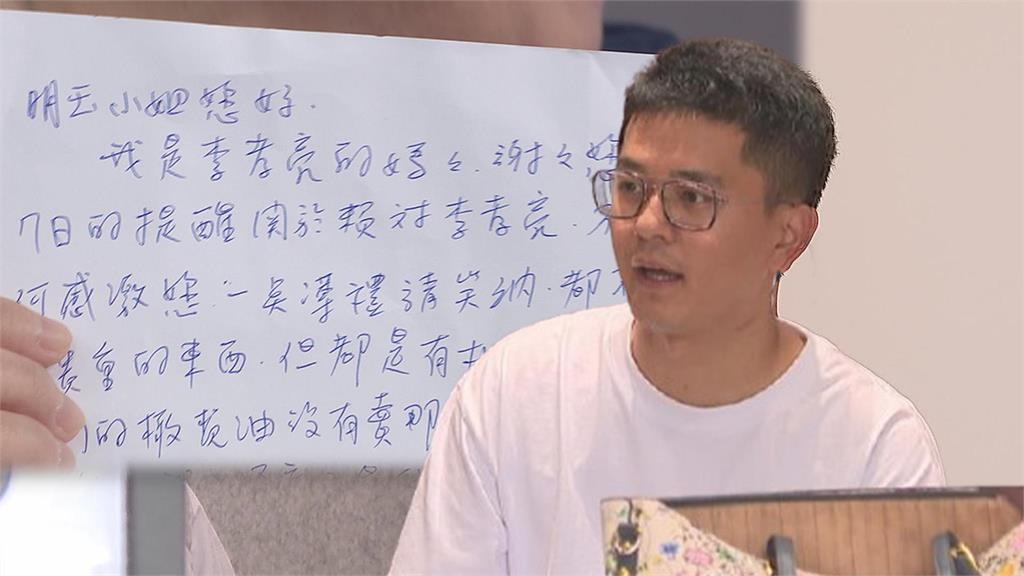 明玉小姐您好.
我是李孝亮的媽々.謝々您
7日的提醒關於賴对李孝亮.
何感激您.一点薄禮請笑纳.都
貴重的東西.但都是有
的橄欖油沒有賣